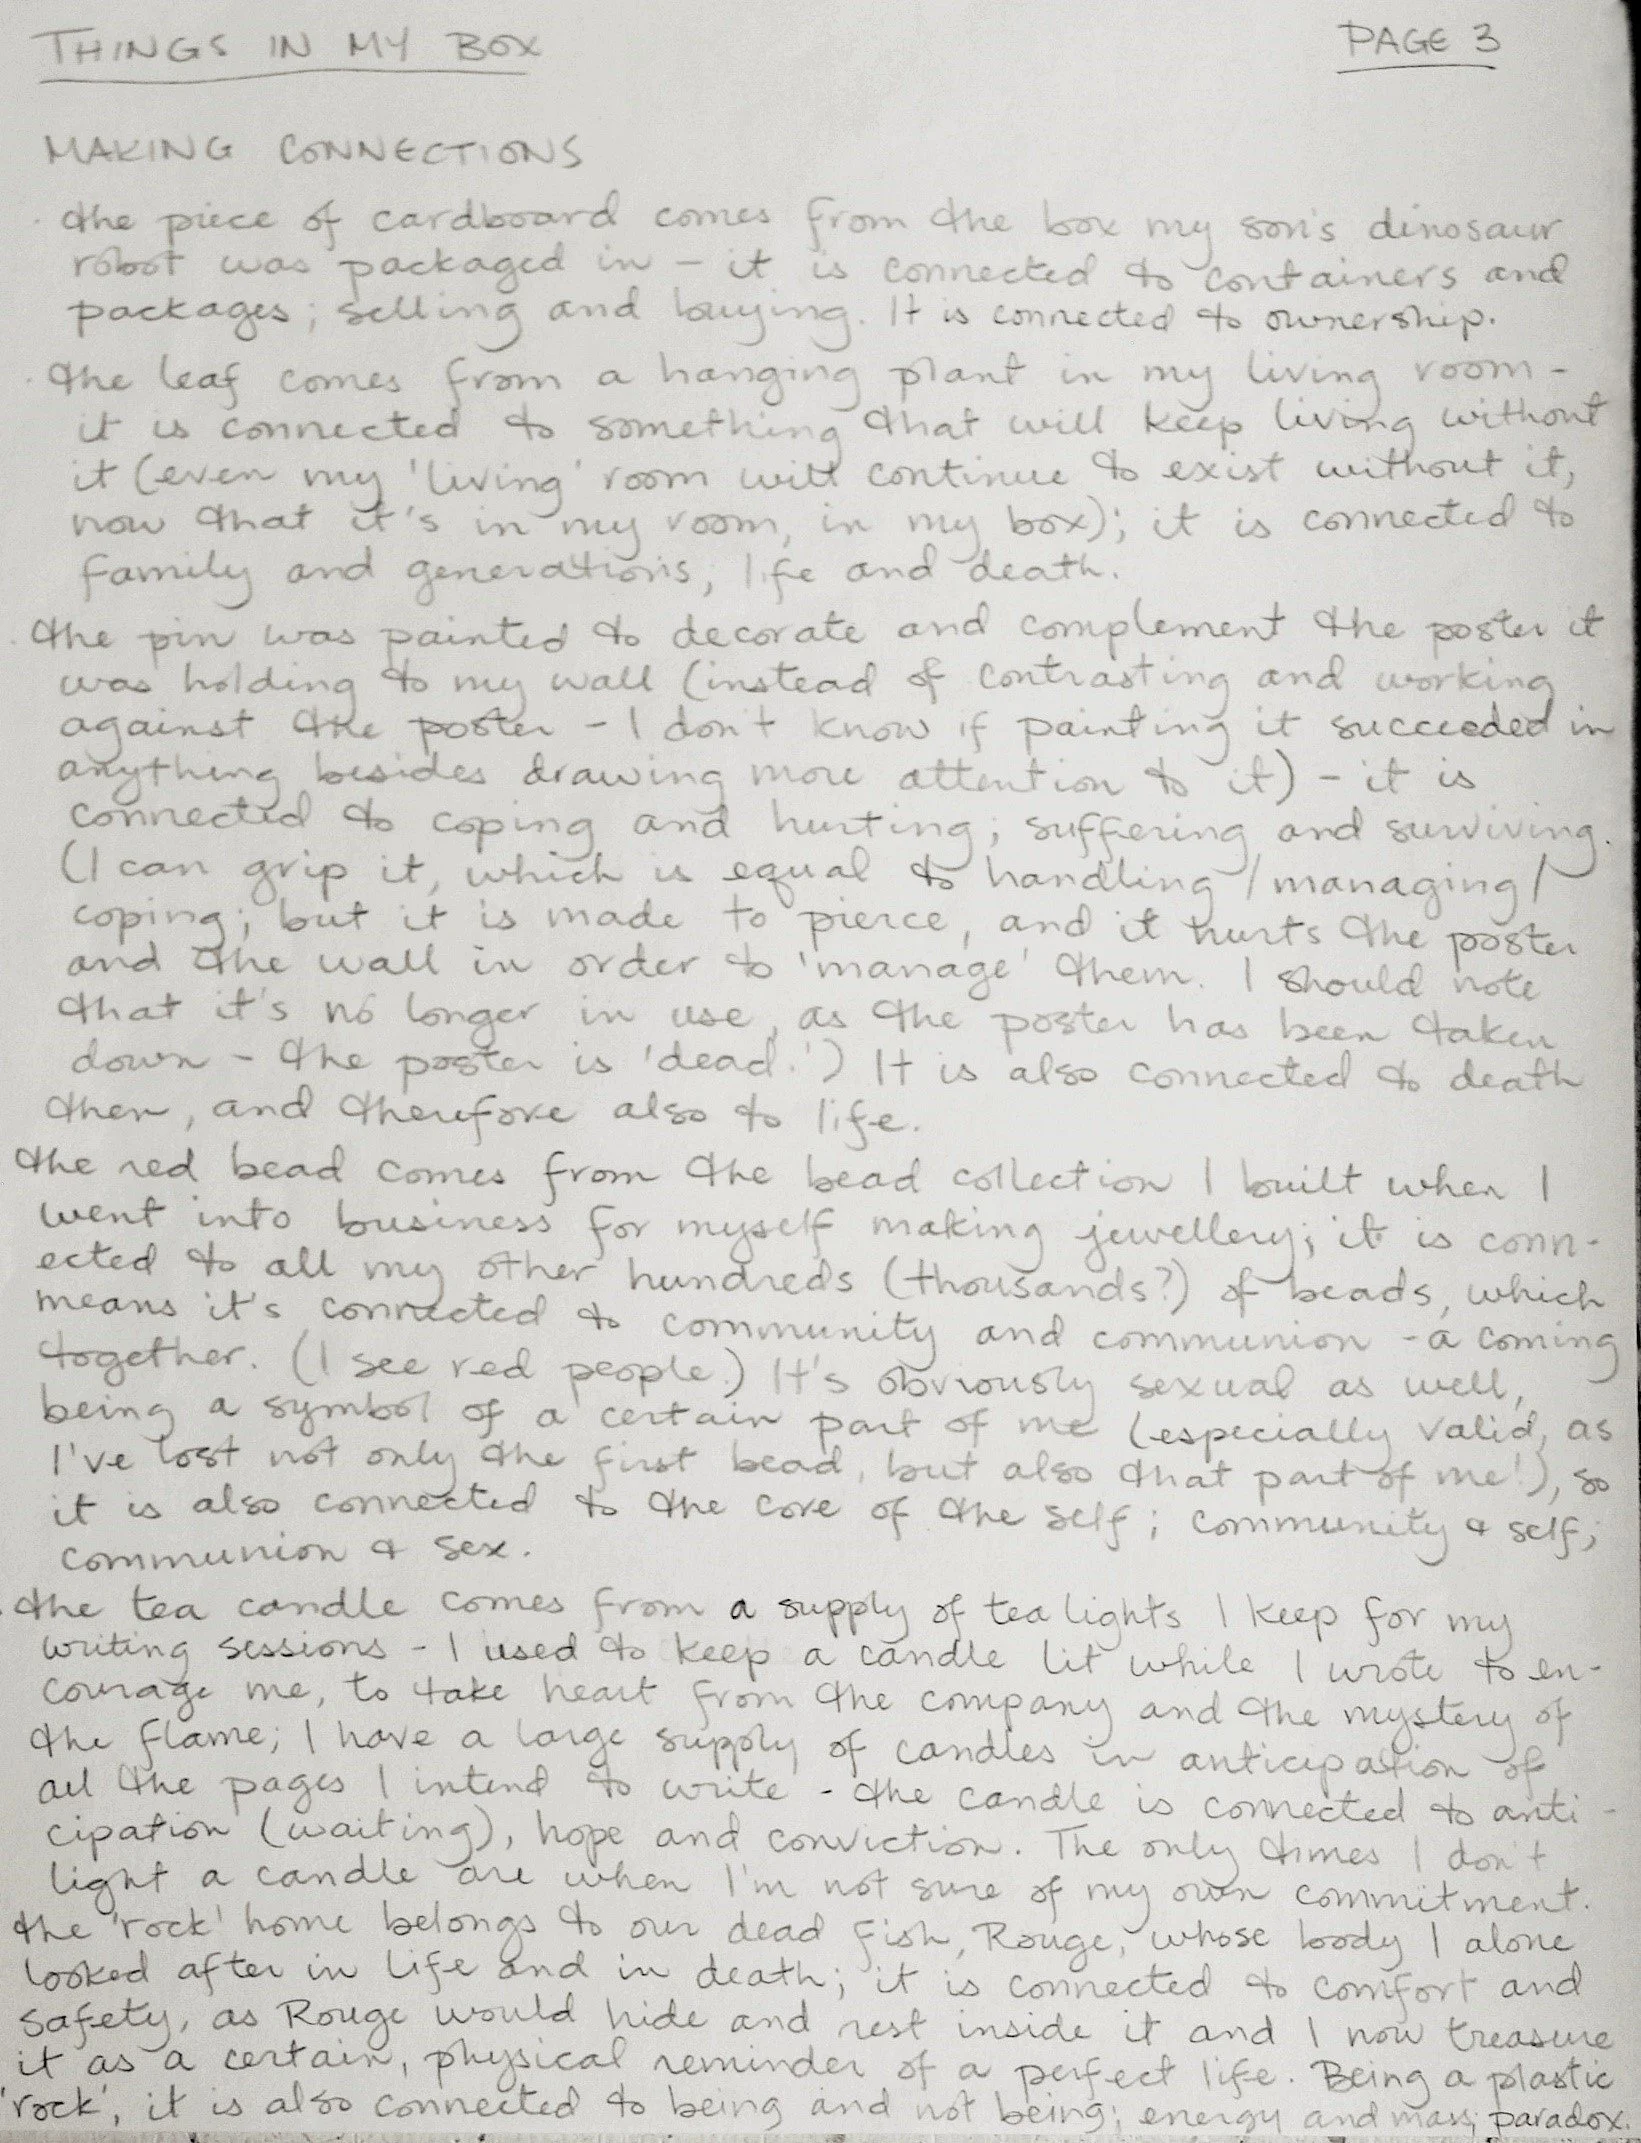 THINGS IN MY BOX
PAGE 3
MAKING CONNECTIONS
· the piece of cardboard comes from the box my son's dinosaur
robot was packaged in – it is connected to containers and
packages; selling and buying. It is connected to ownership.
· the leaf comes from a hanging plant in my living room –
it is connected to something that will keep living without
it (even my 'living' room will continue to exist without it,
now that it's in my room, in my box); it is connected to
family and generations, life and death.
· the pin was painted to decorate and complement the poster it
was holding to my wall (instead of contrasting and working
against the poster – I don't know if painting it succeeded in
anything besides drawing more attention to it) – it is
connected to coping and hurting; suffering and surviving.
(I can grip it, which is equal to handling/managing/
coping; but it is made to pierce, and it hurts the poster
and the wall in order to 'manage' them. I should note
that it's no longer in use, as the poster has been taken
down – the poster is 'dead.') It is also connected to death
then, and therefore also to life.
the red bead comes from the bead collection I built when I
went into business for myself making jewellery; it is conn-
ected to all my other hundreds (thousands?) of beads, which
means it's connected to community and communion – a coming
together. (I see red people.) It's obviously sexual as well,
being a symbol of a certain part of me (especially valid, as
I've lost not only the first bead, but also that part of me!), so
it is also connected to the core of the self; community & self;
communion & sex.
· the tea candle comes from a supply of tea lights I keep for my
writing sessions – I used to keep a candle lit while I wrote to en-
courage me, to take heart from the company and the mystery of
the flame; I have a large supply of candles in anticipation of
all the pages I intend to write – the candle is connected to anti-
cipation (waiting), hope and conviction. The only times I don't
light a candle are when I'm not sure of my own commitment.
the 'rock' home belongs to our dead fish, Rouge, whose body I alone
looked after in life and in death; it is connected to comfort and
safety, as Rouge would hide and rest inside it and I now treasure
it as a certain, physical reminder of a perfect life. Being a plastic
'rock', it is also connected to being and not being; energy and mass; paradox.